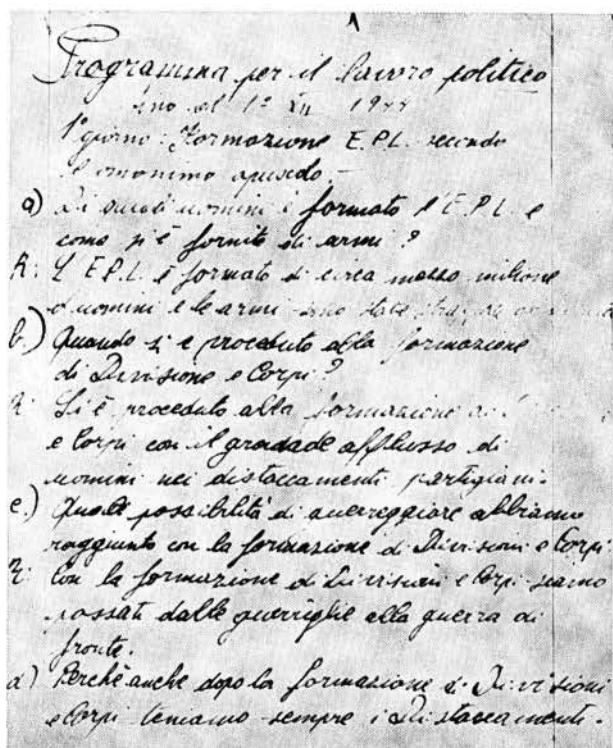 Programma per il lavoro politico
sino al 1° XII 1944
1° giorno: Formazione E.P.L. secondo
l'omonimo opuscolo.-
a) Di quali uomini è formato l'E.P.L. e
come si è fornito di armi?
R: L'E.P.L. è formato di circa mezzo milione
d'uomini e le armi sono state
b.) Quando si è proceduto alla formazione
di Divisione e Corpi?
R: Si è proceduto alla formazione
e Corpi con il gradade afflusso di
uomini nei distaccamenti partigiani.
c.) Quale possibilità di guerreggiare abbiamo
raggiunto con la formazione di Divisioni e Corpi
R: Con la formazione di Divisioni e Corpi siamo
passati dalle guerriglie alla guerra di
fronte.
d) Perchè anche dopo la formazione di Divisioni
e Corpi teniamo sempre i Distaccamenti.